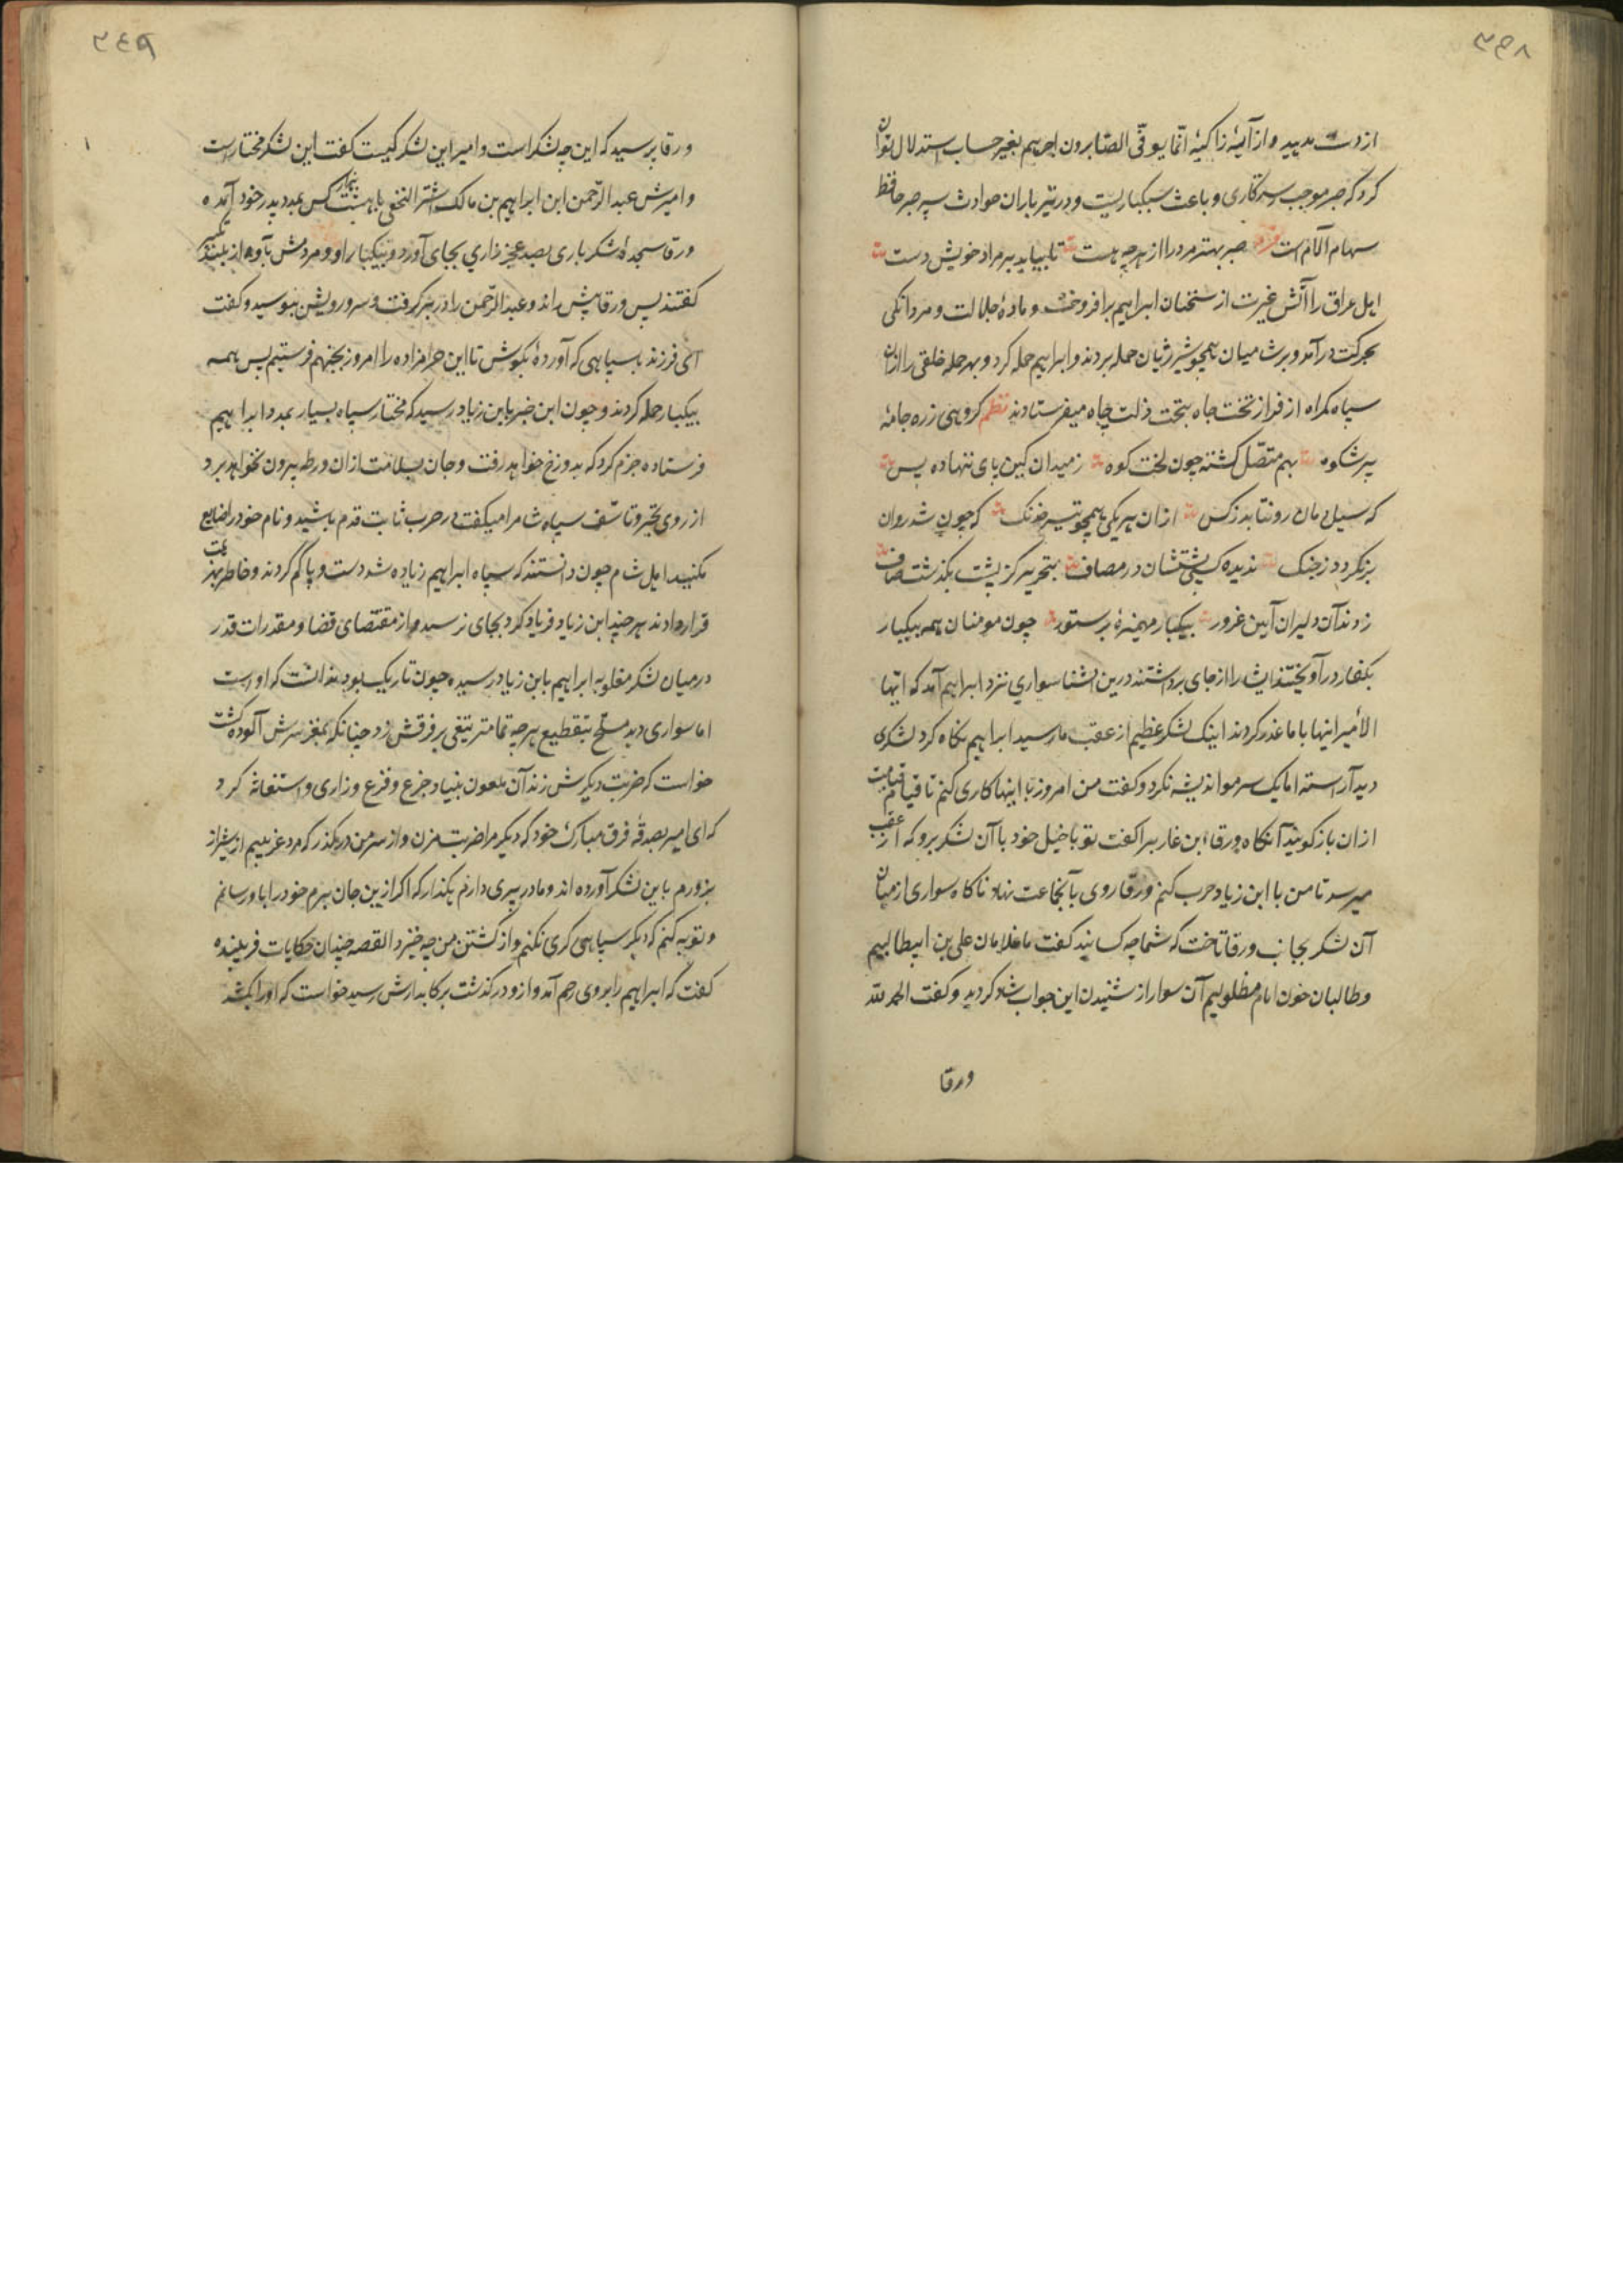 ۳۴۸
از دست مدهید و از آیهٔ زاکیهٔ انّما یوفّی الصّابرون اجرهم بغیر حساب استدلال توان
کرد که صبر موجب رستکاری و باعث سبکباریست و در تیرباران حوادث سپر صبر حافظ
سهام آلام است فرد صبر بهتر مرد را از هرچه هست تا بیابد بر مراد خویش دست
اهل عراق را آتش غیرت از سخنان ابراهیم برافروخت و مادهٔ جلالت و مردانکی
بحرکت درآمد و بر شامیان همچو شیر ژیان حمله بردند و ابراهیم حمله کرد و بهر حمله خلقی را ازان
سپاه کمراه از فراز تخت جاه بتخت ذلت چاه میفرستادند نظم کروهی زره جامهٔ
پر شکوه بهم متصّل کشته چون لخت کوه ز میدان کین پای ننهاده پس
که سیل دمان رو نتابد ز کس ازان هر یکی همچو تیر خدنک که چون شد روان
برنکردد ز جنک ندیده کسی پشتشان در مصاف بتحریر کز پشت بکذشت صاف
زدند آن دلیران آیین غرور بیکبار مهمیزهٔ بر ستور چون مومنان همه بیکبار
بکفار درآویختند ایشان را از جای برداشتند درین اثنا سواری نزد ابراهیم آمد که ایها
الأمیر اینها با ما غدر کردند اینک لشکر عظیم از عقب ما رسید ابراهیم نکاه کرد لشکری
دید آراسته اما یک سر مو اندیشه نکرد و کفت من امروز با اینها کاری کنم تا قیام قیامت
ازان باز کویند آنکاه ورقاء ابن غارب را کفت تو با خیل خود با آن لشکر برو که از عقب
میرسد تا من با ابن زیاد حرب کنم ورقا روی بآنجماعت نهاد ناکاه سواری از میان
آن لشکر بجانب ورقا تاخت که شما چه کسانید کفت ما غلامان علی بن ابیطالبیم
و طالبان خون امام مظلومیم آن سوار از شنیدن این جواب شاد کردید و کفت الحمد لله
ورقا
۳۴۹
ورقا پرسید که این چه لشکر است و امیر این لشکر کیست کفت این لشکر مختار است
و امیرش عبد الرّحمن ابن ابراهیم بن مالک اشتر النخعی با هشت هزار کس بمدد پدر خود آمده
ورقا سجدهٔ شکر باری بصد عجز و زاری بجای آورد و بیکبار او و مردمش بآواز بلند تکبیر
کفتند پس ورقا پیش راند و عبد الرّحمن را در بر کرفت و سر و رویش ببوسید و کفت
ای فرزند با سپاهی که آوردهٔ بکوش تا این حرامزاده را امروز بجهنم فرستیم پس همه
بیکبار حمله کردند و چون این خبر بابن زیاد رسید که مختار سپاه بسیار بمدد ابراهیم
فرستاده جزم کرد که بدوزخ خواهد رفت و جان بسلامت ازان ورطه بیرون نخواهد برد
از روی تحیّر و تأسّف سپاه شام را میکفت در حرب ثابت قدم باشید و نام خود را ضایع
مکنید اهل شام چون دانستند که سپاه ابراهیم زیاده شد دست و پا کم کردند و خاطر بهزیمت
قرار دادند هر چند ابن زیاد فریاد کرد بجای نرسید و از مقتضای قضا و مقدرات قدر
در میان لشکر مغلوبه ابراهیم بابن زیاد رسید و چون تاریک بود ندانست که اوست
اما سواری دید مسلّح بتقطیع هر چه تمامتر تیغی بر فرقش زد چنانکه بمغز سرش آلوده کشت
خواست که ضربت دیکرش زند آن ملعون بنیاد جزع و فزع و زاری و استغاثه کرد
که ای امیر بصدقهٔ فرق مبارک خود که دیکر مرا ضربت مزن و از سر من درکذر که مرد غریبیم از شیراز
بزورم باین لشکر آورده اند و مادر پیری دارم بکذار که اکر ازین جان برم خود را باو رسانم
و توبه کنم که دیکر سپاهی کری نکنم و از کشتن من چه خیزد القصه چندان حکایات فریبنده
کفت که ابراهیم را بر وی رحم آمد و ازو درکذشت بر رکابدارش رسید خواست که او را بکشد